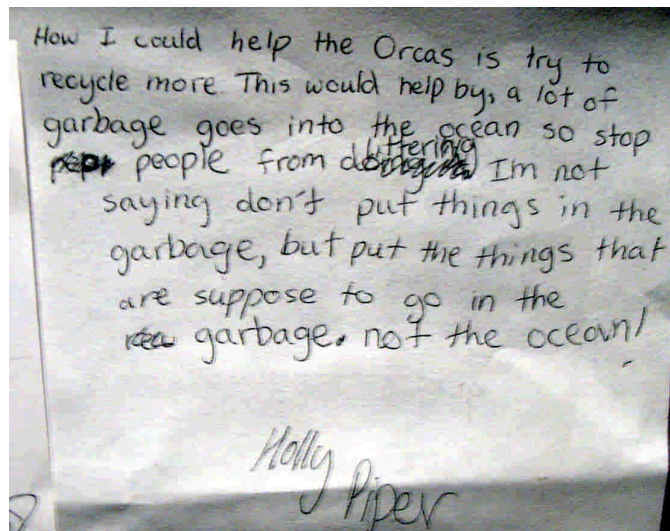 How I could help the Orcas is try to
recycle more. This would help by, a lot of
garbage goes into the ocean so stop
people from littering Im not
saying don't put things in the
garbage, but put the things that
are suppose to go in the
garbage. not the ocean!
Holly
Piper